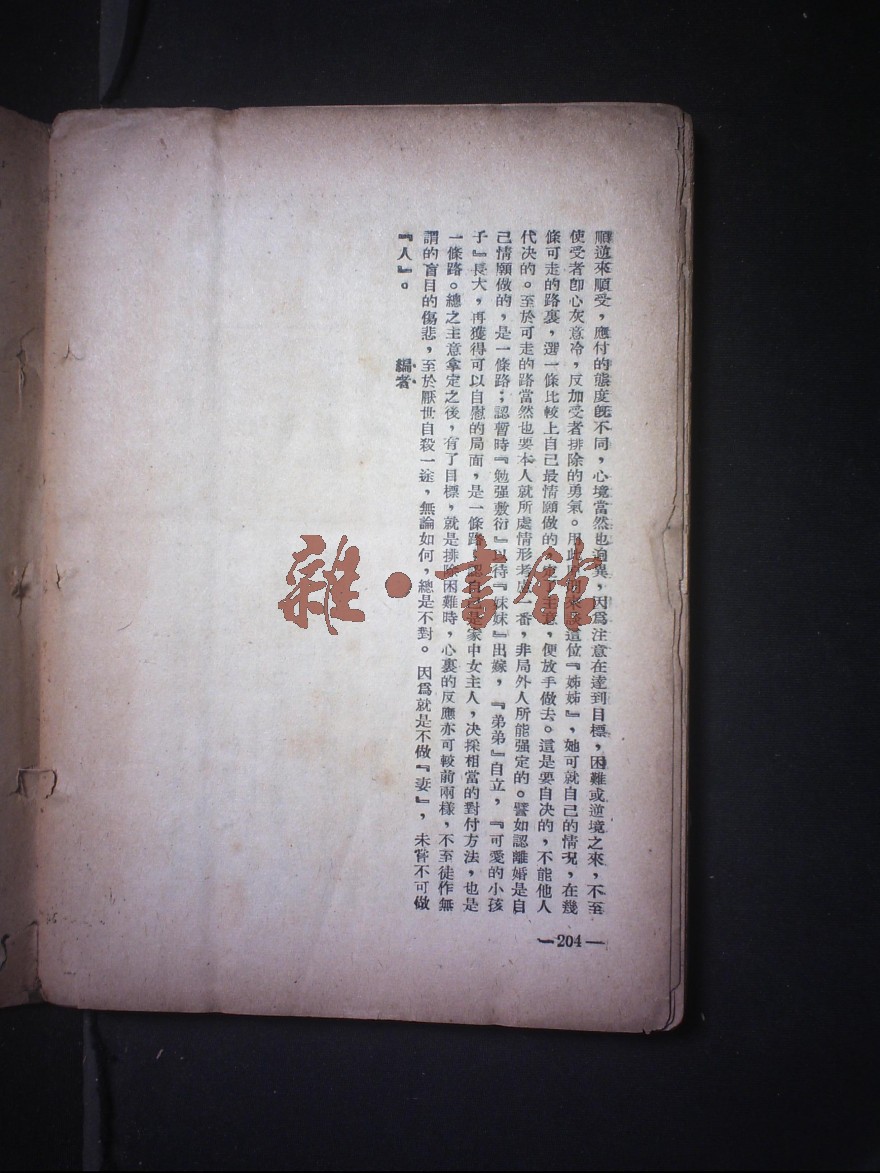 順逆來順受，應付的態度旣不同，心境當然也迥異，因爲注意在達到目標，困難或逆境之來，不至
使受者卽心灰意冷，反加受者排除的勇氣。用此來這位『姊姊』，她可就自己的情況，在幾
條可走的路裏，選一條比較上自己最情願做的，便放手做去。這是要自決的，不能他人
代決的。至於可走的路當然也要本人就所處情形考慮一番，非局外人所能强定的。譬如認離婚是自
己情願做的，是一條路；認暫時『勉强敷衍』以待『妹妹』出嫁，『弟弟』自立，『可愛的小孩
子』長大，再獲得可以自慰的局面，是一條路；認自己是家中女主人，決採相當的對付方法，也是
一條路。總之主意拿定之後，有了目標，就是排除困難時，心裏的反應亦可較前兩樣，不至徒作無
謂的盲目的傷悲，至於厭世自殺一途，無論如何，總是不對。因爲就是不做『妻』，未嘗不可做
『人』。 編者
—204—
雜·書館